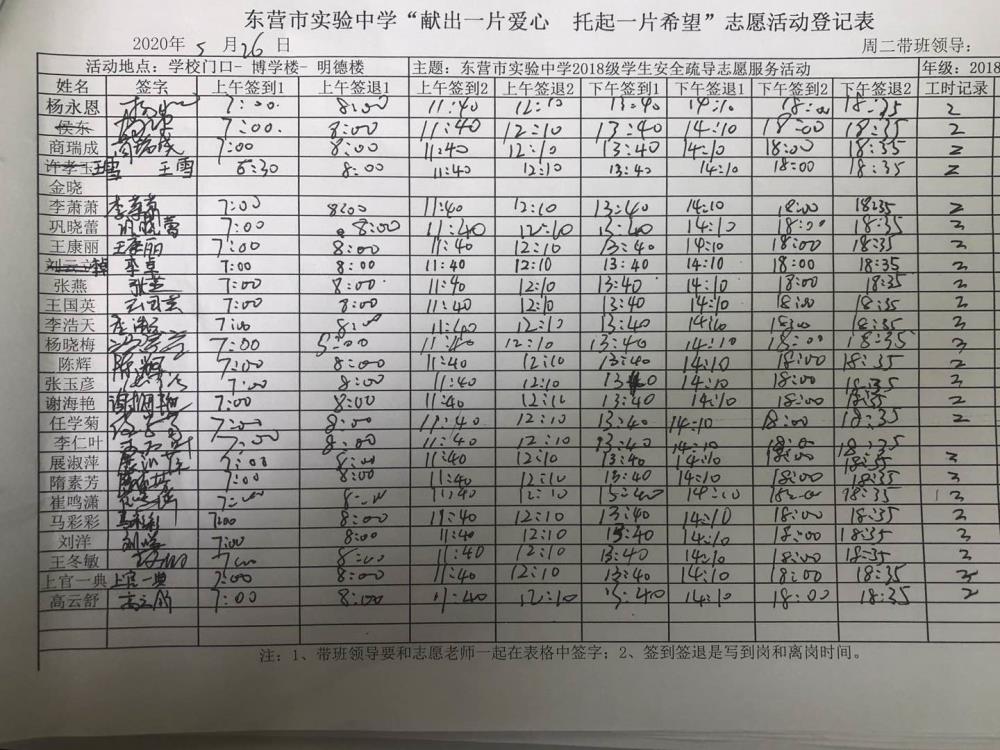 东营市实验中学“献出一片爱心 托起一片希望”志愿活动登记表
2020年 5 月 26 日 周二带班领导：
活动地点：学校门口- 博学楼- 明德楼 主题：东营市实验中学2018级学生安全疏导志愿服务活动 年级：2018
姓名 签字 上午签到1 上午签退1 上午签到2 上午签退2 下午签到1 下午签退1 下午签到2 下午签退2 工时记录
杨永恩 7:00 8:00 11:40 12:10 13:40 14:10 18:00 18:35 2
侯东 7:00 8:00 11:40 12:10 13:40 14:10 18:00 18:35 2
商瑞成 商瑞成 7:00 8:00 11:40 12:10 13:40 14:10 18:00 18:35 2
许孝玉 王雪 王雪 6:30 8:00 11:40 12:10 13:40 14:10 18:00 18:35 2
金晓
李萧萧 李萧萧 7:00 8:00 11:40 12:10 13:40 14:10 18:00 18:35 2
巩晓蕾 巩晓蕾 7:00 8:00 11:40 12:10 13:40 14:10 18:00 18:35 2
王康丽 王康丽 7:00 8:00 11:40 12:10 13:40 14:10 18:00 18:35 2
李卓 7:00 8:00 11:40 12:10 13:40 14:10 18:00 18:35 2
张燕 张燕 7:00 8:00 11:40 12:10 13:40 14:10 18:00 18:35 2
王国英 王国英 7:00 8:00 11:40 12:10 13:40 14:10 18:00 18:35 2
李浩天 7:00 8:00 11:40 12:10 13:40 14:10 18:00 18:35 2
杨晓梅 7:00 8:00 11:40 12:10 13:40 14:10 18:00 18:35 2
陈辉 陈辉 7:00 8:00 11:40 12:10 13:40 14:10 18:00 18:35 2
张玉彦 7:00 8:00 11:40 12:10 13:40 14:10 18:00 18:35 2
谢海艳 谢海艳 7:00 8:00 11:40 12:10 13:40 14:10 18:00 18:35 2
任学菊 7:00 8:00 11:40 12:10 13:40 14:10 18:00 18:35 2
李仁叶 7:00 8:00 11:40 12:10 13:40 14:10 18:00 18:35
展淑萍 7:00 8:00 11:40 12:10 13:40 14:10 18:00 18:35 2
隋素芳 7:00 8:00 11:40 12:10 13:40 14:10 18:00 18:35 2
崔鸣潇 7:00 8:00 11:40 12:10 13:40 14:10 18:00 18:35 2
马彩彩 马彩彩 7:00 8:00 11:40 12:10 13:40 14:10 18:00 18:35 2
刘洋 刘洋 7:00 8:00 11:40 12:10 13:40 14:10 18:00 18:35 2
王冬敏 7:00 8:00 11:40 12:10 13:40 14:10 18:00 18:35 2
上官一典 上官一典 7:00 8:00 11:40 12:10 13:40 14:10 18:00 18:35 2
高云舒 高云舒 7:00 8:00 11:40 12:10 13:40 14:10 18:00 18:35 2
注：1、带班领导要和志愿老师一起在表格中签字；2、签到签退是写到岗和离岗时间。